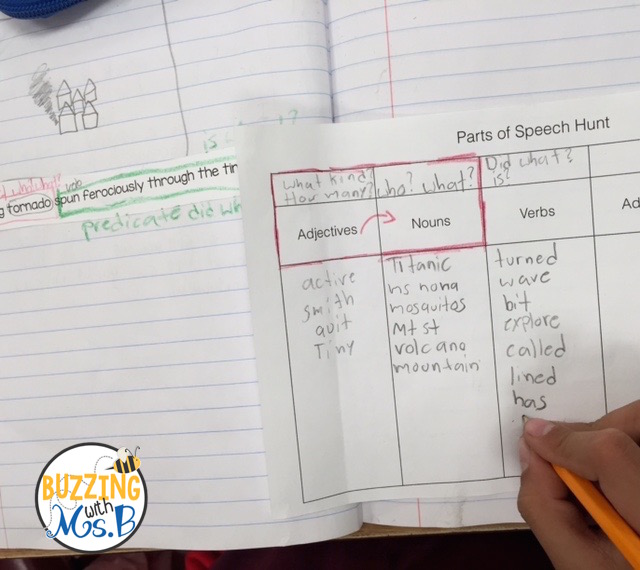 is
g tornado) spun ferociously through the tir
verb
predicate did wh
Parts of Speech Hunt
what kind?
How many?
who? what?
Did what?
is?
Adjectives
Nouns
Verbs
Ad
active
smith
quit
Tiny
Titanic
ns nona
mosquitos
Mt st
volcano
mountain
turned
wave
bit
explore
called
lined
has
BUZZING
with
Ms. B